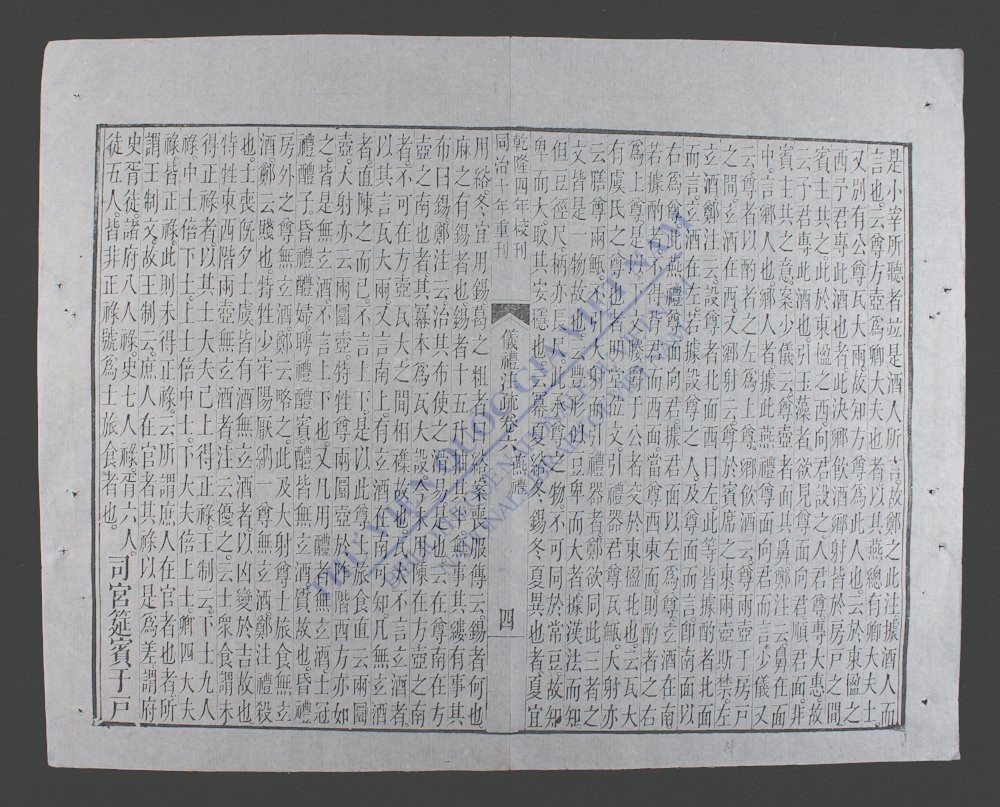 是小宰所聽者竝是酒人所言故鄭之此注據酒人而
言也云尊方壺爲卿大夫士也者以其燕總有卿大夫士
又別有公尊瓦大兩故知方尊爲此人也云於東楹之
西予君專此酒也者決鄉飲酒鄉射皆於房戶之間
賓主共之此於東楹之西向君設之人君尊專大惠故
云予君專此酒也引玉藻者欲見尊面向君順君面非
賓主共之意案少儀云尊壺者面其鼻鄭注云鼻在面
中言鄉人也鄉人者據此燕禮尊面向君而言少儀又
云尊者以酌者之左爲上尊鄉飲酒云尊兩壺于房戶
之間玄酒在西又鄉射云尊於賓席之東兩壺斯禁左
玄酒鄭注云設尊者北面西曰左尊之人及尊面南以
而言玄酒在左若據設尊之人及尊面而言即南面以
右爲尊此燕禮尊面向君據君面以左爲尊玄酒在南
爲上尊是以少儀注云
若據酌者不得背君而西面當尊西東面則酌者之右
有虞氏之尊也者明堂位文引禮器君尊瓦甒者云瓦大
云膳尊兩甒不引大射而引禮器者鄭欲同此三者之
文皆是一物故也云豐形似豆卑而大者據漢法而知
但豆徑尺柄亦長尺此承尊之物不可同於常豆故知
卑而大取其安穩也云冪夏綌冬錫冬夏異也者夏宜
乾隆四年校刊
同治十年重刊
儀禮注疏卷六 燕禮
四
用綌冬宜用錫葛之粗者曰綌案喪服傳云錫者何也
麻之有錫者也錫者十五升抽其半無事其縷有事其
布曰錫鄭注云治其布使之滑易是也云在尊南在方
壺之南也者其冪本爲瓦大設今未用陳在方壺之南
者不可在方壺瓦大之間相雜故也瓦大不言玄酒者
以其言瓦大兩又言南上有玄酒在南可知凡無玄酒
者直陳之而已不言上下是以此尊士旅食直云兩圜
壺大射亦云兩圜壺特牲尊兩圜壺於阼階西方亦如
之皆是無玄酒不言上下也又凡用醴者無玄酒士冠
禮醴子昏禮醴婦聘禮醴賓醴質故也昏禮
房外之尊無玄酒鄭云略之此及大射尊士旅食無玄
酒鄭云賤也特牲少牢陽厭納一尊無玄酒鄭注禮殺
也士喪旣夕士虞皆有酒無玄酒者以凶變於吉故也
特牲東西階兩壺無玄酒者注云優之云士衆食謂未
得正祿者以其士大夫已上得正祿王制云下士九人
祿中士倍下士上士倍中士下大夫倍上士卿四大夫
祿皆正祿此則未得正祿云所謂庶人在官者也者所
謂王制文故王制云庶人在官者其祿以是爲差謂府
史胥徒諸府八人祿史七人祿胥六人
徒五人皆非正祿號爲士旅食者也 司宮筵賓于戶
THƯ VIỆN QUỐC GIA VIỆT NAM
BIBLIOTHÈQUE NATIONALE DU VIETNAM
NATIONAL LIBRARY OF VIETNAM